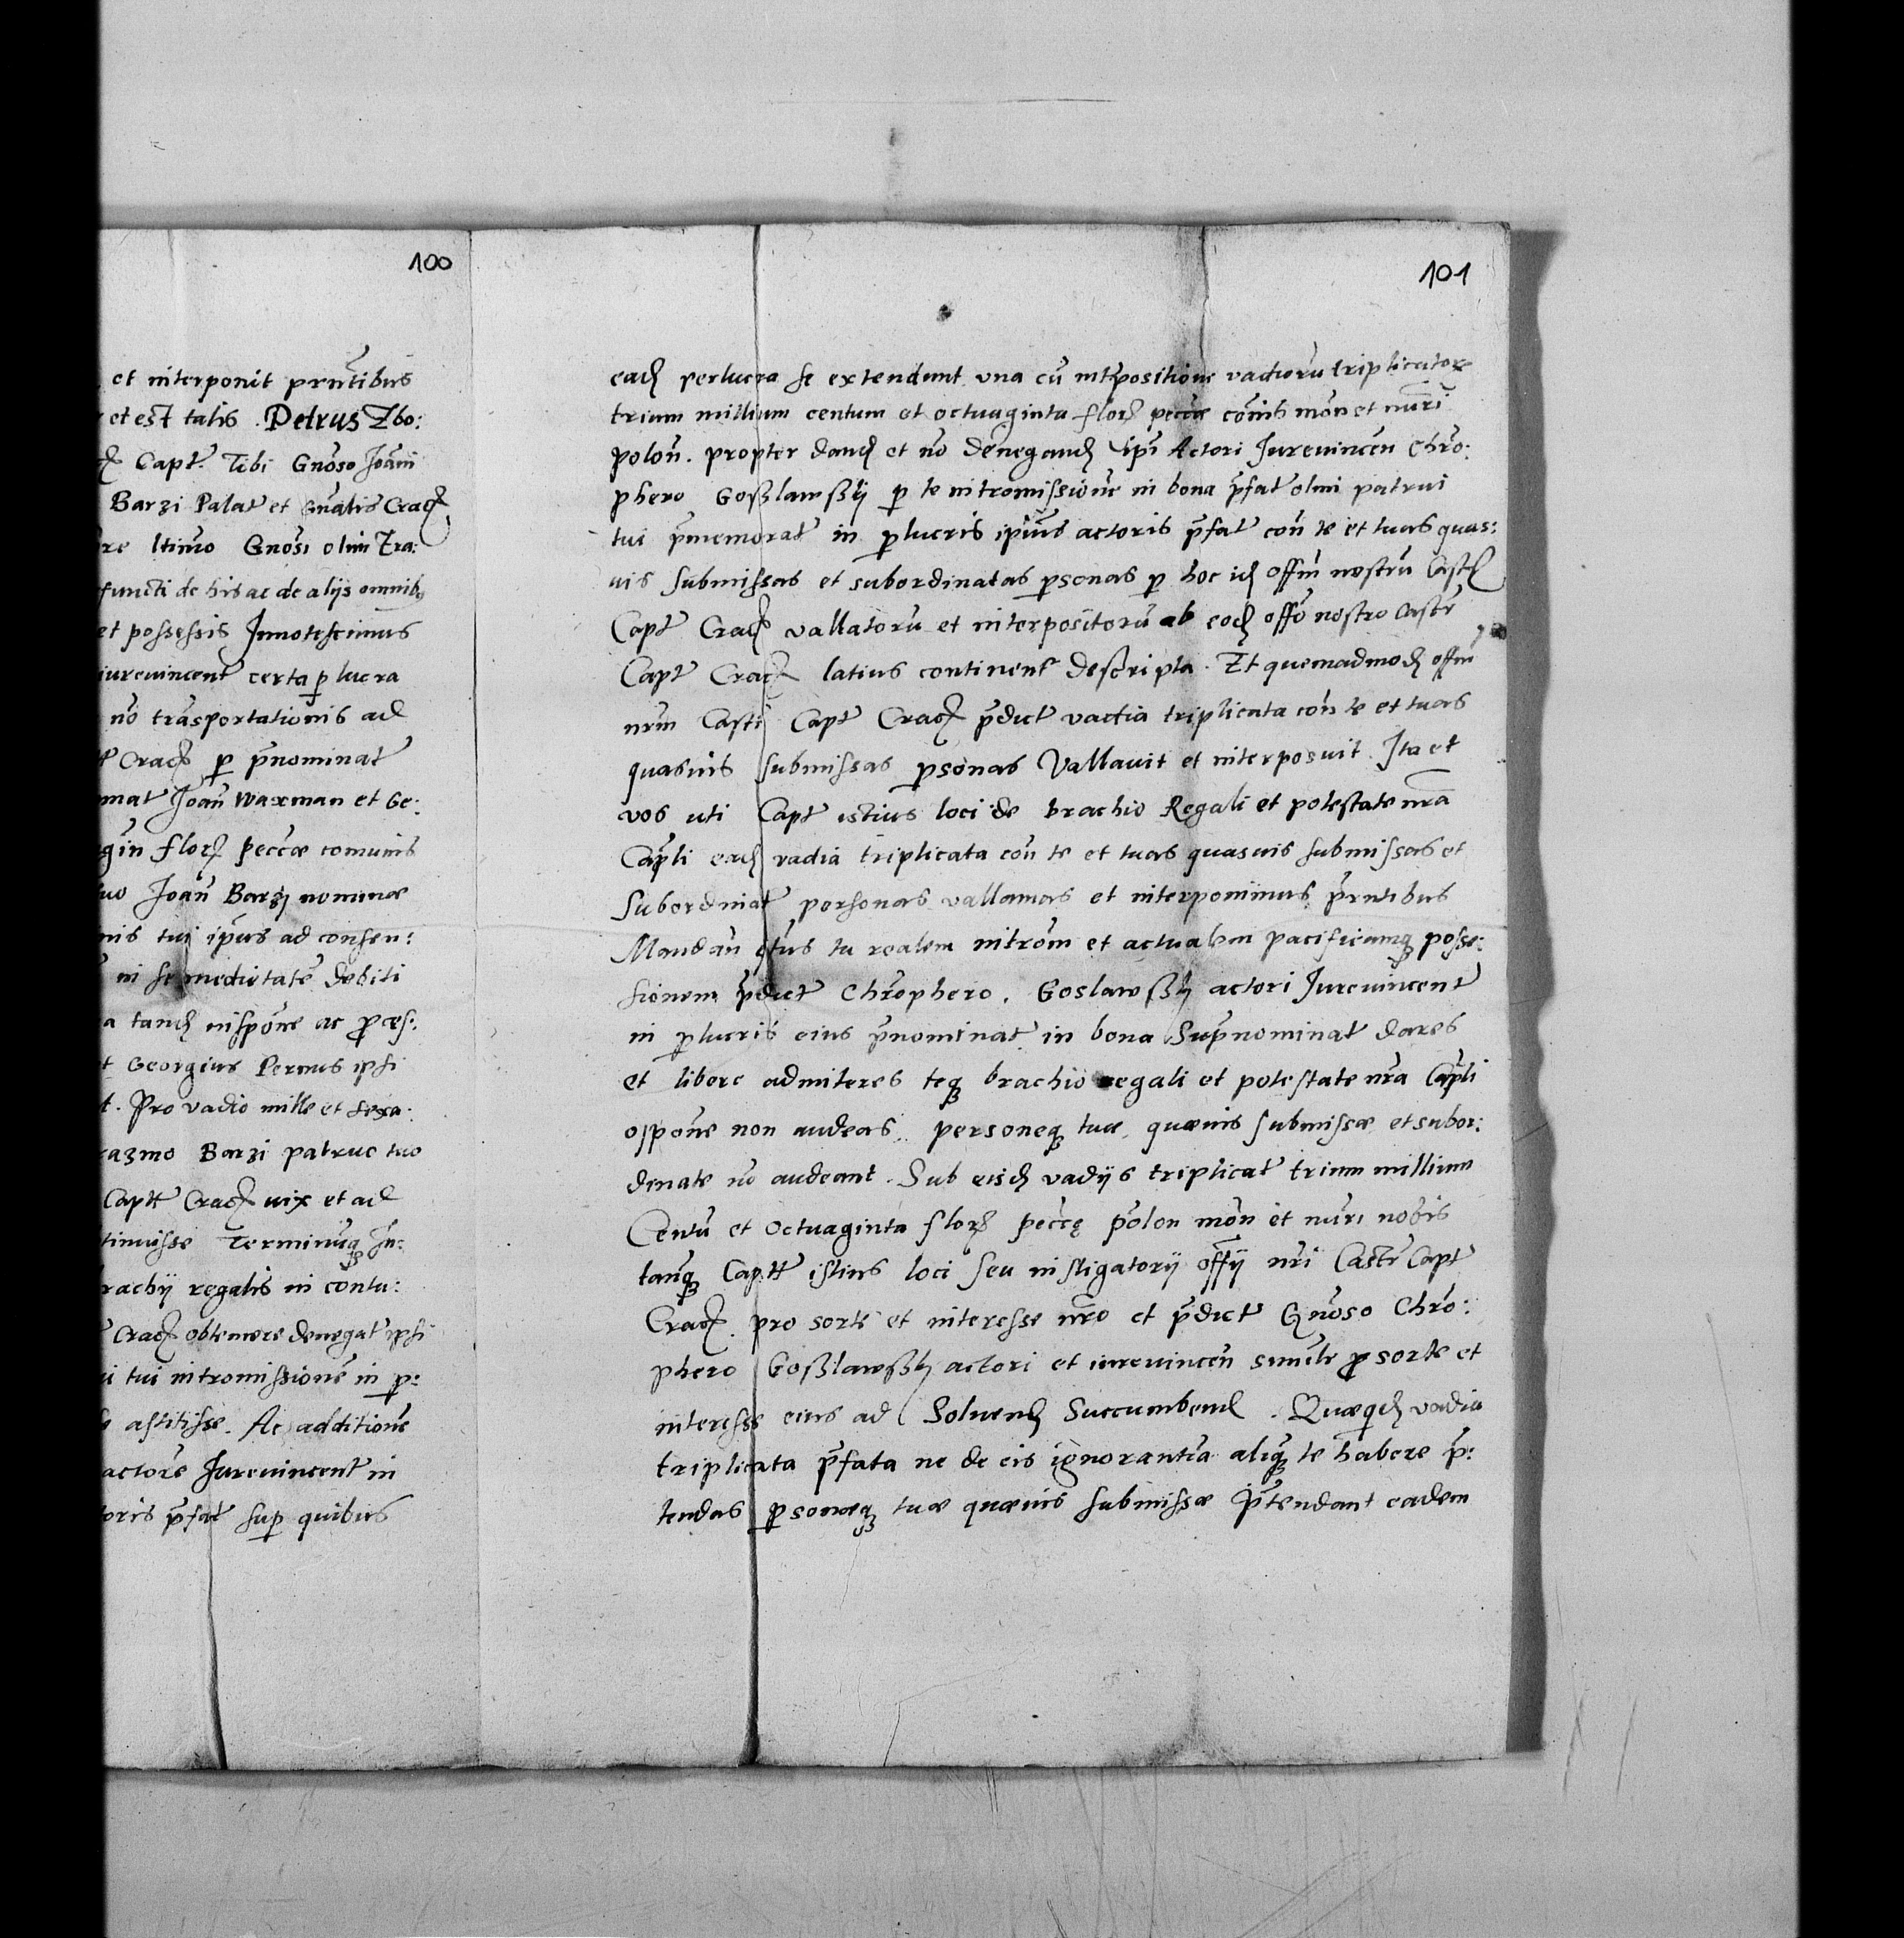 100
et interponit prñtibus
et est talis. Petrus Zbo:
Capt. Tibi Gnoso Joãni
Barzi Palat et Gnãlis Crac
re ltimo Gnosi olim Era:
functi de his ac de alijs omnib9
et possessis Innotescimus
iurevincent certa p lucra
nõ trãsportationis ad
Crac p p̃nominat
mat Joañ Waxman et Ge:
gin flor pecc̃æ comunis
uo Joañ Barzij nominæ
nis tui ipius ad consen:
in se medietatẽ debiti
a tand inspone ac proces:
t Georgius Permus ipsi
t. Pro vadio mille et sexa:
razmo Barzi patruo tuo
Captt Crac uix et ad
tinuisse Terminũq In:
rachij regalis in contu:
Crac obtemere denegat ipsi
i tui intromissionẽ in p:
astitisse. Ac additione
actorẽ Jurevincent in
toris p̃fat sup quibus
101
ead perlucra se extendunt una cũ intpositione vadiorũ triplicator
trium millium centum et octuaginta flor pecc̃æ com̃is mon et nũri
polon. propter dand et nõ denegand ipi Actori Jurevincen Chrõ:
phero Goßlawßkij p te intromissione in bona p̃fat olim patrui
tui p̃memorat in p lucris ipius actoris p̃fat con te et tuas quas:
uis submissas et subordinatas psonas p hoc id offm nostrũ Cast
Capt Crac vallatorũ et interpositorũ ab eod offõ nostro Castr
Capt Crac latius continent descripta. Et quemadmod offm
nrm Castr Capt Crac p̃dict vadia triplicata con te et tuas
quasuis submissas psonas Vallauit et interposuit Ita et
vos uti Capt istius loci de brachio Regali et potestate nrã
Cap̃li ead vadia triplicata con te et tuas quasuis submissas et
Subordinat personas vallamus et interponimus p̃ntibus
Mandañ q̃tus tu realem introm et actualem pacificamq posse:
sionem p̃dict Chrõphero. Goslawßkij actori Jurevincent
in plucris eius p̃nominat in bona Sup̃nominat dares
et libere admiteres teq brachio regali et potestate nrã Cap̃li
ospone non audeas. personeq tuæ quæuis submissæ et subor:
dinate nõ audeant. Sub eisd vadijs triplicat trium millium
Centũ et Octuaginta flor pecc̃ę polon mon et nũri nobis
tanq Captt istius loci seu instigatorij offij nri Castr Capt
Crac. pro sorte et interesse nrõ et p̃dict Gnoso Chrõ:
phero Goßlawßkij actori et iurevincen simile p sorte et
interesse eius ad Soluend Succumbend. Quæqd vadia
triplicata p̃fata ne de eis ignorantia aliq te habere p̃:
tendas psonæq tuæ quæuis submissæ p̃tendant eadem